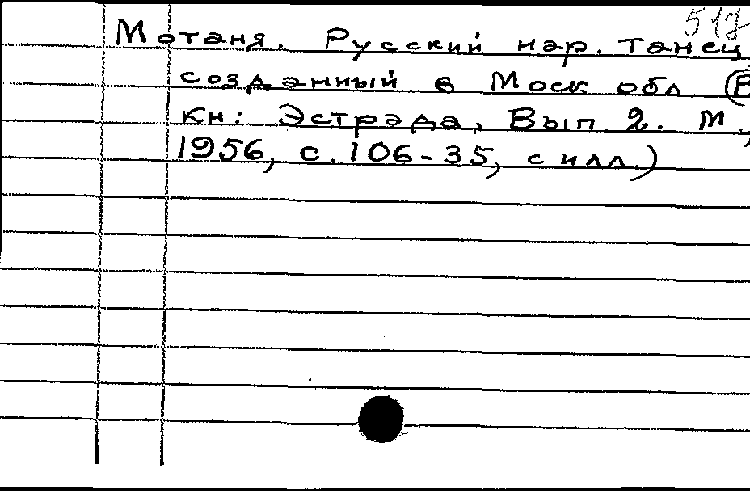 Мотаня. Русский нар. танец
созданный в Моск обл (В
кн: Эстрада, Вып 2. М.,
1956, с. 106-35, с илл.)